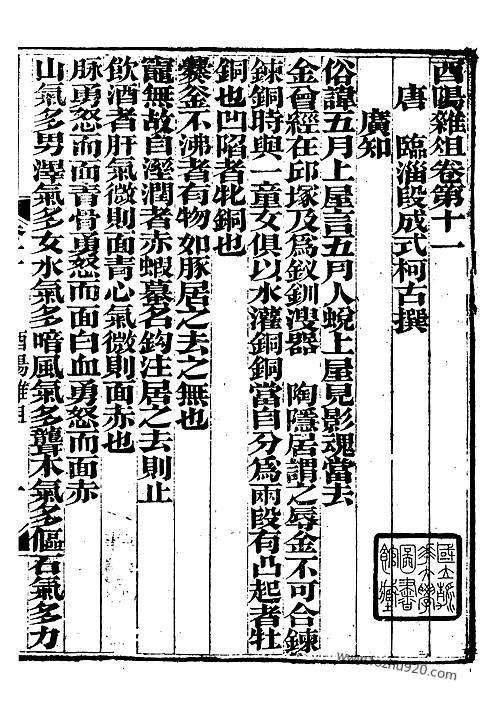 酉陽雜俎卷第十一
唐　臨淄段成式柯古撰
廣知
俗諱五月上屋言五月人蛻上屋見影魂當去
金曾經在邱塚及為釵釧溲器　陶隱居謂之辱金不可合鍊
鍊銅時與一童女俱以水灌銅銅當自分為兩段有凸起者牡
銅也凹陷者牝銅也
爨釜不沸者有物如豚居之去之無也
竈無故自溼潤者赤蝦蟇名鈎注居之去則止
飲酒者肝氣微則面青心氣微則面赤也
脉勇怒而面青骨勇怒而面白血勇怒而面赤
山氣多男澤氣多女水氣多喑風氣多聾木氣多傴石氣多力
酉陽雜俎
國立清華大學圖書館藏
www.fozhu920.com